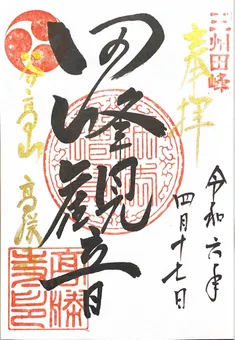 三州田峰
奉拝
令和六年
四月十七日
田峰観音
谷高山 高勝寺
高勝寺印